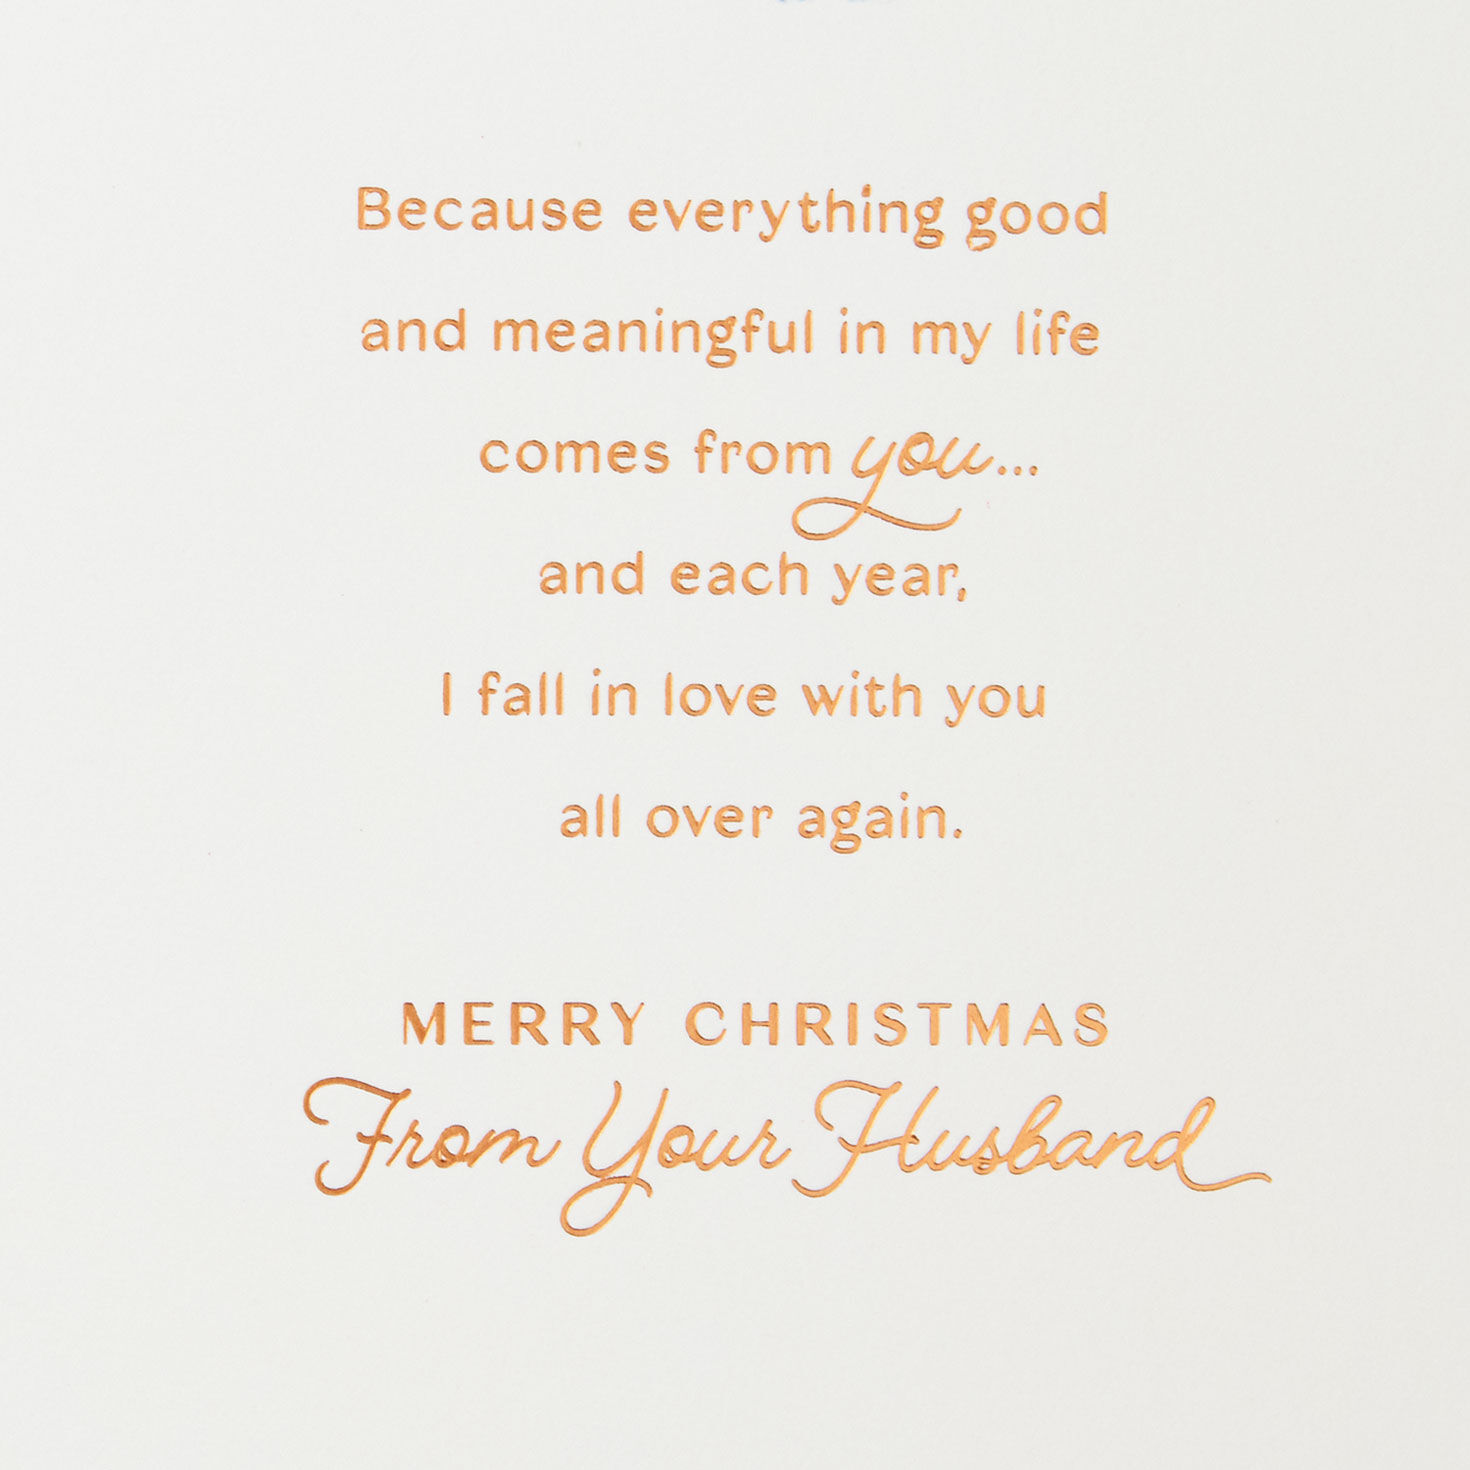 Because everything good
and meaningful in my life
comes from you...
and each year,
I fall in love with you
all over again.
MERRY CHRISTMAS
From Your Husband